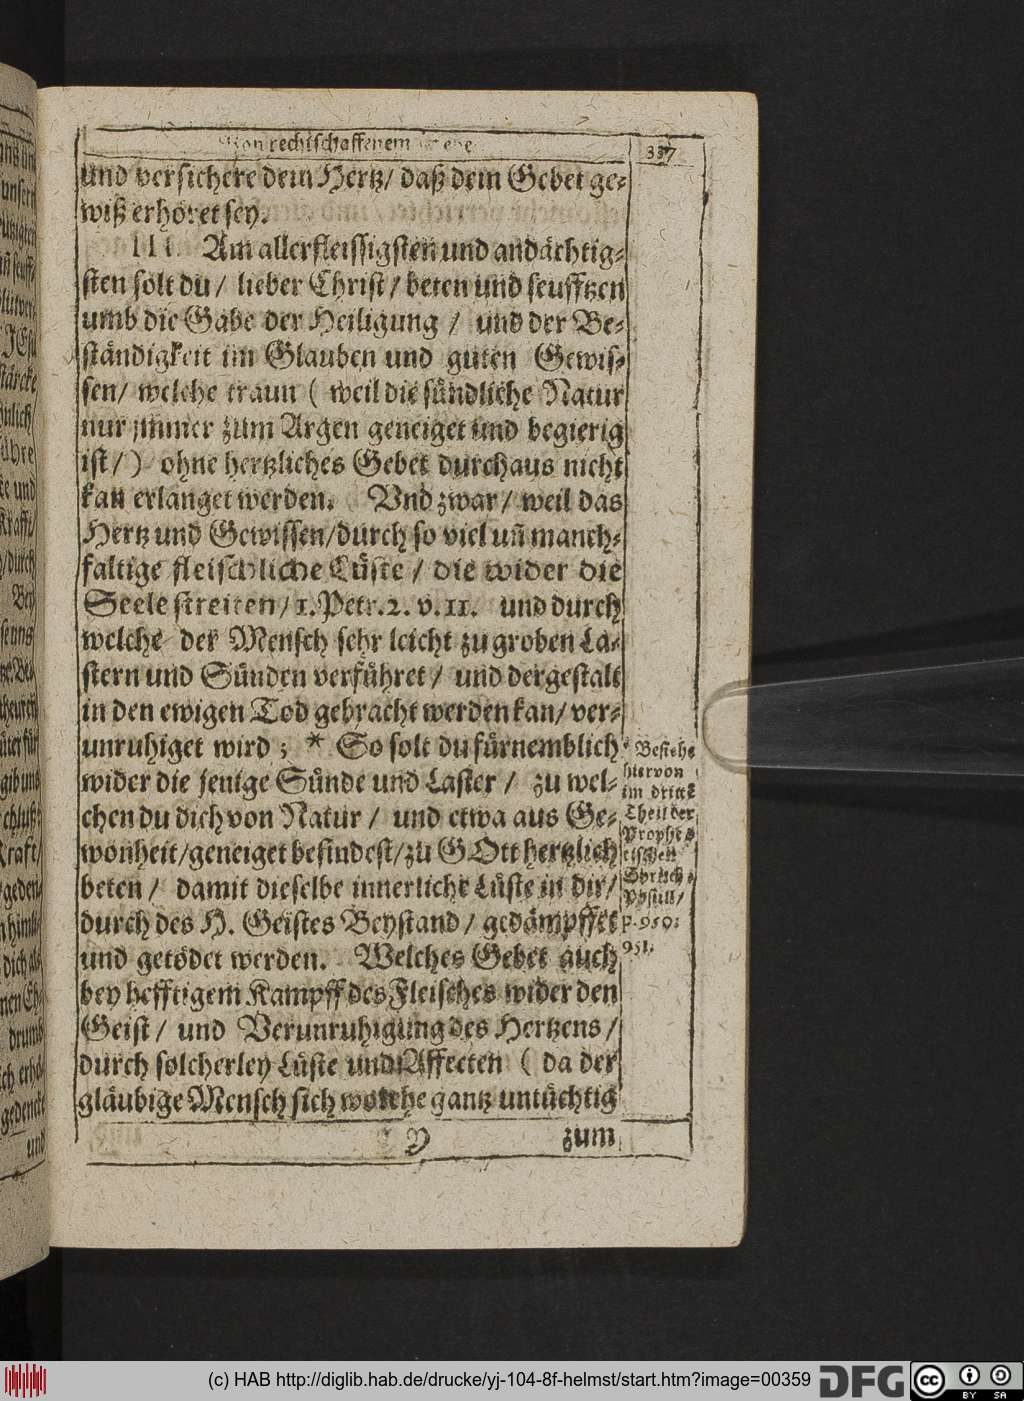 Von rechtschaffenem
337
und versichere dein Hertz/ daß dein Gebet ge-
wiß erhöret sey.
III. Am allerfleissigsten und andächtig-
sten solt du/ lieber Christ/ beten und seufftzen
umb die Gabe der Heiligung / und der Be-
ständigkeit im Glauben und guten Gewis-
sen/ welche traun ( weil die sündliche Natur
nur immer zum Argen geneiget und begierig
ist/) ohne hertzliches Gebet durchaus nicht
kan erlanget werden. Vnd zwar/ weil das
Hertz und Gewissen/durch so viel uñ manch-
faltige fleischliche Lüste / die wider die
Seele streiten/ 1. Petr. 2. v. 11. und durch
welche der Mensch sehr leicht zu groben La-
stern und Sünden verführet/ und dergestalt
in den ewigen Tod gebracht werden kan/ ver-
unruhiget wird; * So solt du fürnemblich
wider die jenige Sünde und Laster / zu wel-
chen du dich von Natur / und etwa aus Ge-
wonheit/geneiget befindest/zu GOtt hertzlich
beten / damit dieselbe innerliche Lüste in dir/
durch des H. Geistes Beystand/ gedämpffet
und getödet werden. Welches Gebet auch
bey hefftigem Kampff des Fleisches wider den
Geist / und Verunruhigung des Hertzens /
durch solcherley Lüste und Affecten ( da der
gläubige Mensch sich welche gantz untüchtig
* Bestehe
hiervon
im dritte
Theil der
Prophe-
tischen
Sprüch-
Postill/
p. 950.
951.
Y
zum
und
(c) HAB http://diglib.hab.de/drucke/yj-104-8f-helmst/start.htm?image=00359
DFG
cc
BY
SA